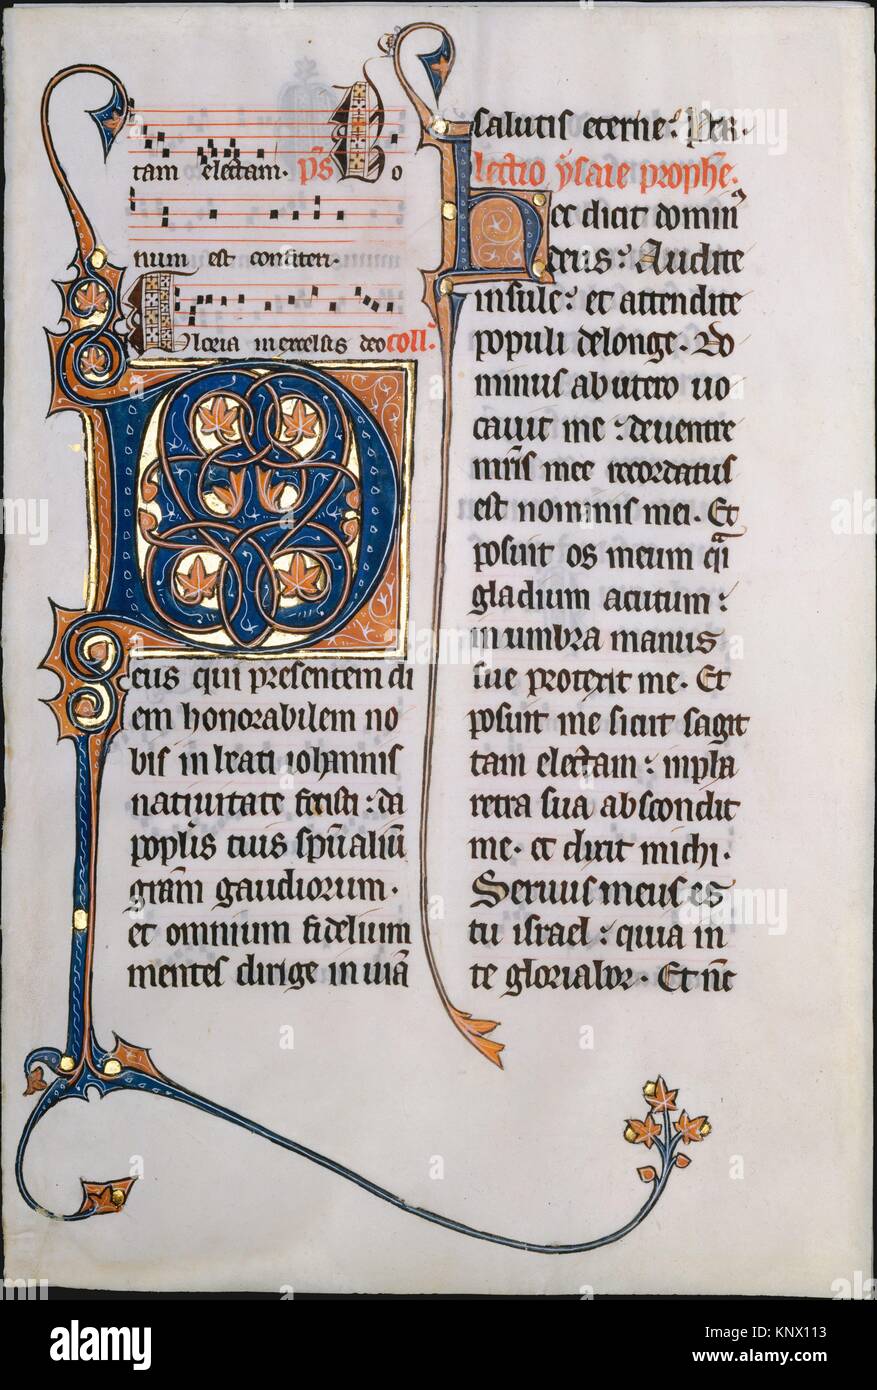 tam electam. ps Bo
num est confiteri.
Gloria in excelsis deo coll.
Deus qui presentem di
em honorabilem no
bis in beati iohannis
natiuitate fecisti : da
poplis tuis spualiu
gram gaudiorum.
et omnium fidelium
mentes dirige in uia
salutis eterne: Per.
lectio ysaie prophe.
hec dicit domin
deus : Audite
insule : et attendite
populi delonge. Do
minus ab utero uo
cauit me : de uentre
mris mee recordatus
est nominis mei. Et
posuit os meum qi
gladium acutum :
in umbra manus
sue protexit me. Et
posuit me sicut sagit
tam electam : in pha
retra sua abscondit
me. et dixit michi.
Seruus meus es
tu israel : quia in
te gloriabor. Et nc
alamy
alamy stock photo
KNX113
www.alamy.com